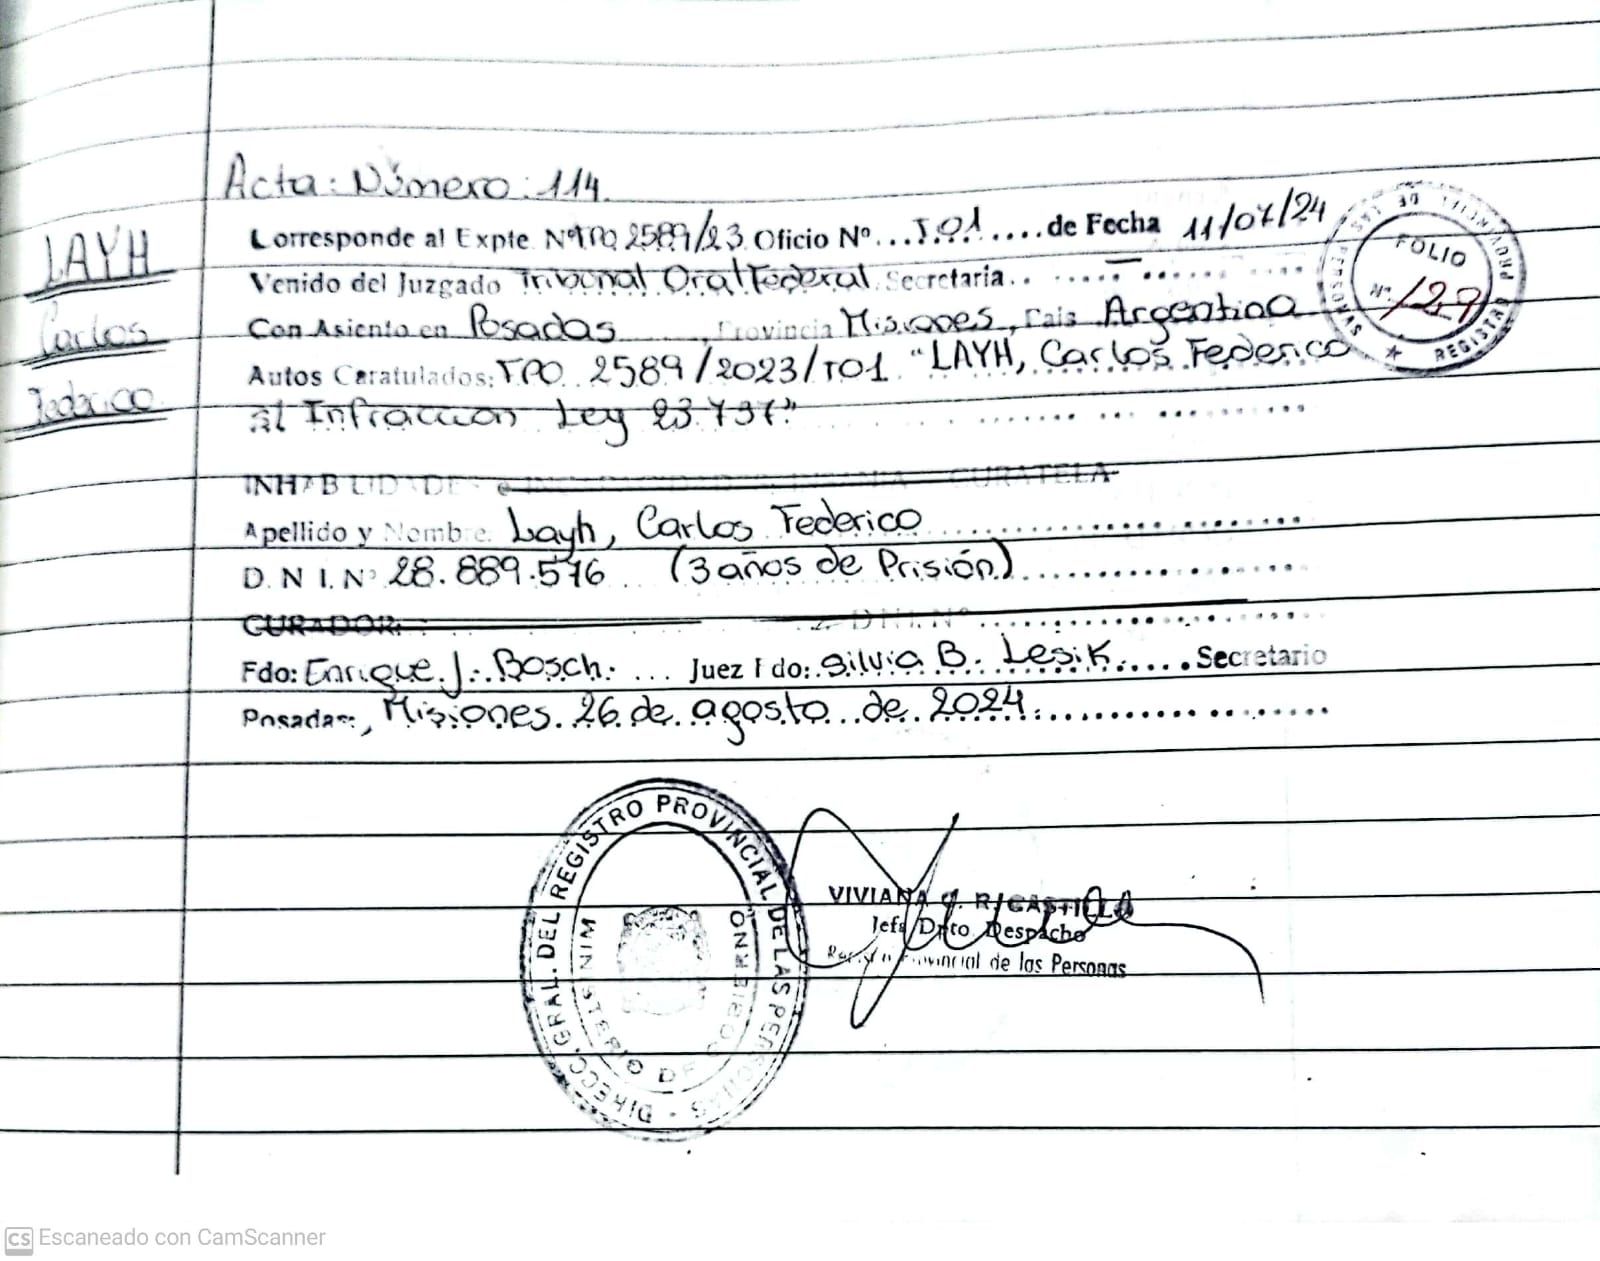 Acta: Número: 114.
LAYH
Carlos
Federico
Corresponde al Expte. NºTPO 2589/23. Oficio Nº...T.01.....de Fecha 11/07/24
Venido del Juzgado Tribunal Oral Federal Secretaria..
Con Asiento en Posadas, Provincia Misiones, Pais Argentina
Autos Caratulados: TPO 2589/2023/T01 "LAYH, Carlos Federico
s/ Infraccion Ley 23.737"
FOLIO
Nº 129
REGISTRO PROVINCIAL DE LAS PERSONAS
INHABILIDADES e INCAPACIDADES: INSANIA - CURATELA
Apellido y Nombre: Layh, Carlos Federico
D. N I. Nº 28.889.576 (3 años de Prisión)
CURADOR: D.N.I. Nº
Fdo: Enrique. J. Bosch. ... Juez Fdo: Silvia B. Lesik..... Secretario
Posadas, Misiones. 26 de agosto de 2024.
DIRECC. GRAL. DEL REGISTRO PROVINCIAL DE LAS PERSONAS
MINISTERIO DE GOBIERNO
VIVIANA R. CASTILLO
Jefa Dpto. Despacho
Registro Provincial de las Personas
CS Escaneado con CamScanner